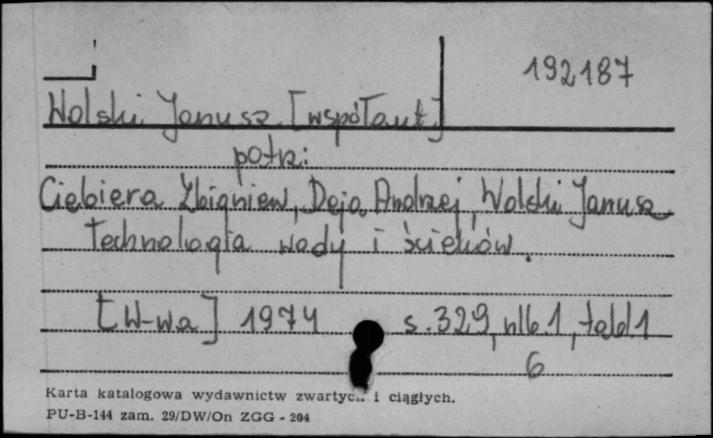 192187
Wolski Janusz [współaut]
patrz:
Ciebiera Zbigniew, Deja Andrzej, Wolski Janusz
Technologia wody i ścieków.
[W-wa] 1974 s. 329, nlb 1, tabl 1
6
Karta katalogowa wydawnictw zwartych i ciągłych.
PU-B-144 zam. 29/DW/On ZGG - 204